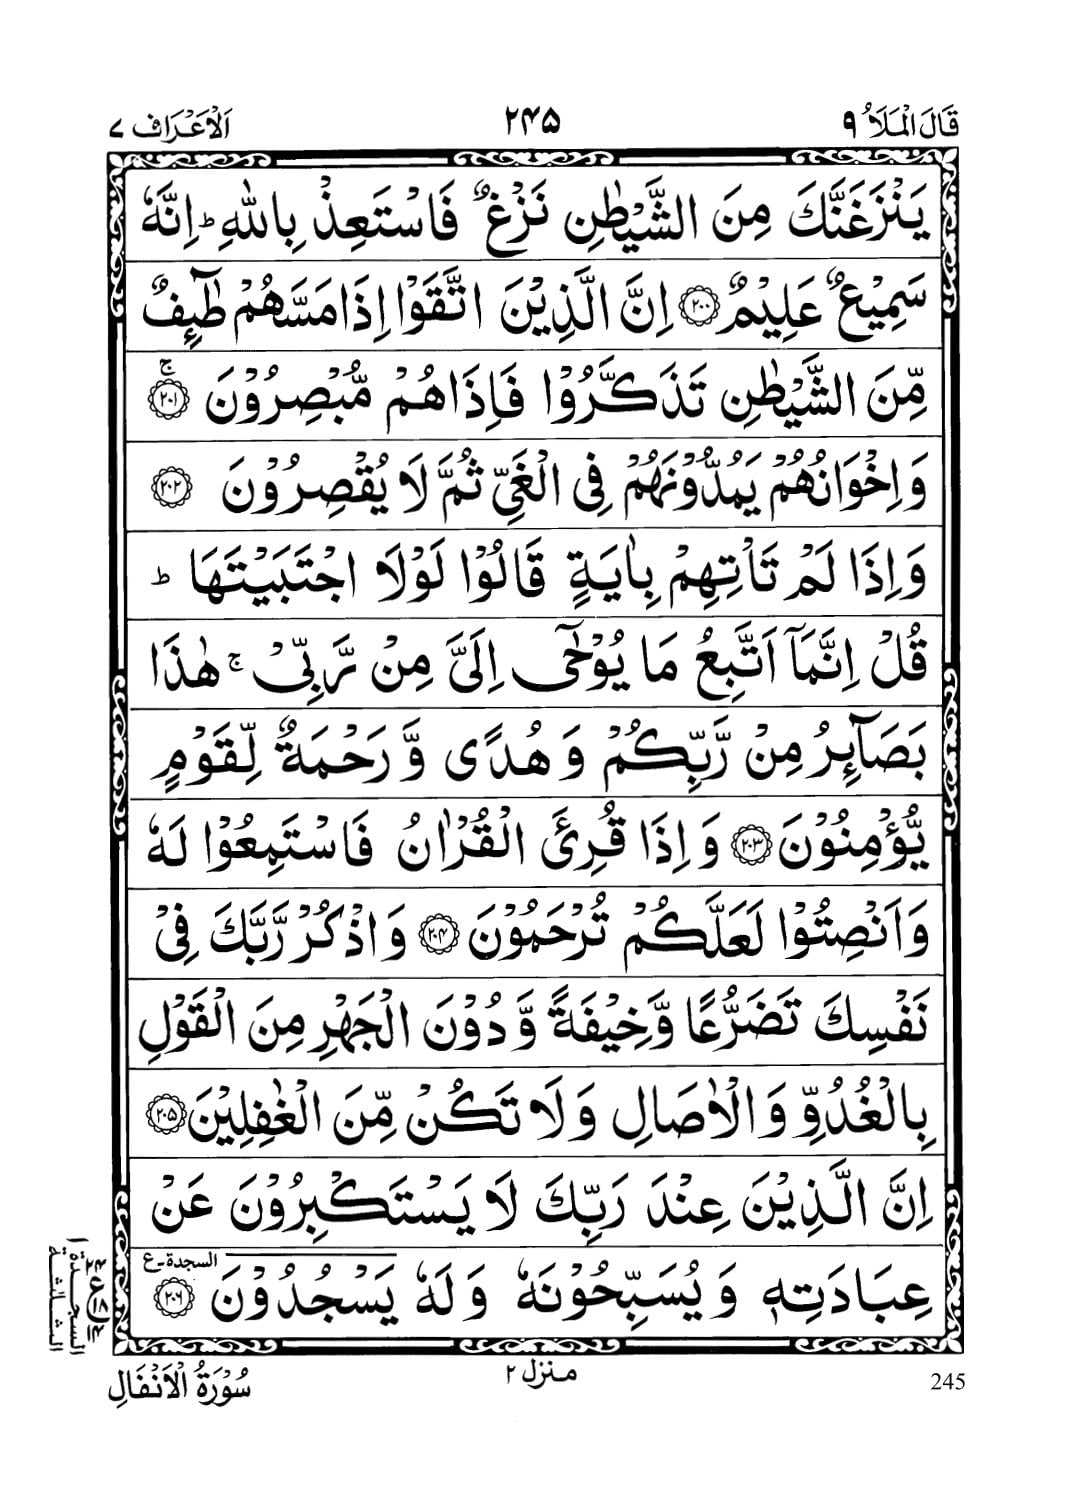 قَالَ الْمَلَاُ ۹ ۲۴۵ اَلْاَعْرَاف ۷
يَنْزَغَنَّكَ مِنَ الشَّيْطٰنِ نَزْغٌ فَاسْتَعِذْ بِاللّٰهِ ؕ اِنَّهٗ
سَمِيْعٌ عَلِيْمٌ ﴿۲۰۰﴾ اِنَّ الَّذِيْنَ اتَّقَوْا اِذَا مَسَّهُمْ طٰٓئِفٌ
مِّنَ الشَّيْطٰنِ تَذَكَّرُوْا فَاِذَا هُمْ مُّبْصِرُوْنَ ﴿۲۰۱﴾ۚ
وَاِخْوَانُهُمْ يَمُدُّوْنَهُمْ فِى الْغَىِّ ثُمَّ لَا يُقْصِرُوْنَ ﴿۲۰۲﴾
وَاِذَا لَمْ تَاْتِهِمْ بِاٰيَةٍ قَالُوْا لَوْلَا اجْتَبَيْتَهَا ؕ
قُلْ اِنَّمَاۤ اَتَّبِعُ مَا يُوْحٰۤى اِلَىَّ مِنْ رَّبِّىْ ۚ هٰذَا
بَصَآئِرُ مِنْ رَّبِّكُمْ وَهُدًى وَّرَحْمَةٌ لِّقَوْمٍ
يُّؤْمِنُوْنَ ﴿۲۰۳﴾ وَاِذَا قُرِئَ الْقُرْاٰنُ فَاسْتَمِعُوْا لَهٗ
وَاَنْصِتُوْا لَعَلَّكُمْ تُرْحَمُوْنَ ﴿۲۰۴﴾ وَاذْكُرْ رَّبَّكَ فِىْ
نَفْسِكَ تَضَرُّعًا وَّخِيْفَةً وَّدُوْنَ الْجَهْرِ مِنَ الْقَوْلِ
بِالْغُدُوِّ وَالْاٰصَالِ وَلَا تَكُنْ مِّنَ الْغٰفِلِيْنَ ﴿۲۰۵﴾
اِنَّ الَّذِيْنَ عِنْدَ رَبِّكَ لَا يَسْتَكْبِرُوْنَ عَنْ
السجدة-ع
عِبَادَتِهٖ وَيُسَبِّحُوْنَهٗ وَلَهٗ يَسْجُدُوْنَ ﴿۲۰۶﴾
السجدة ١
سُوْرَةُ الْاَنْفَالِ منزل ۲ 245